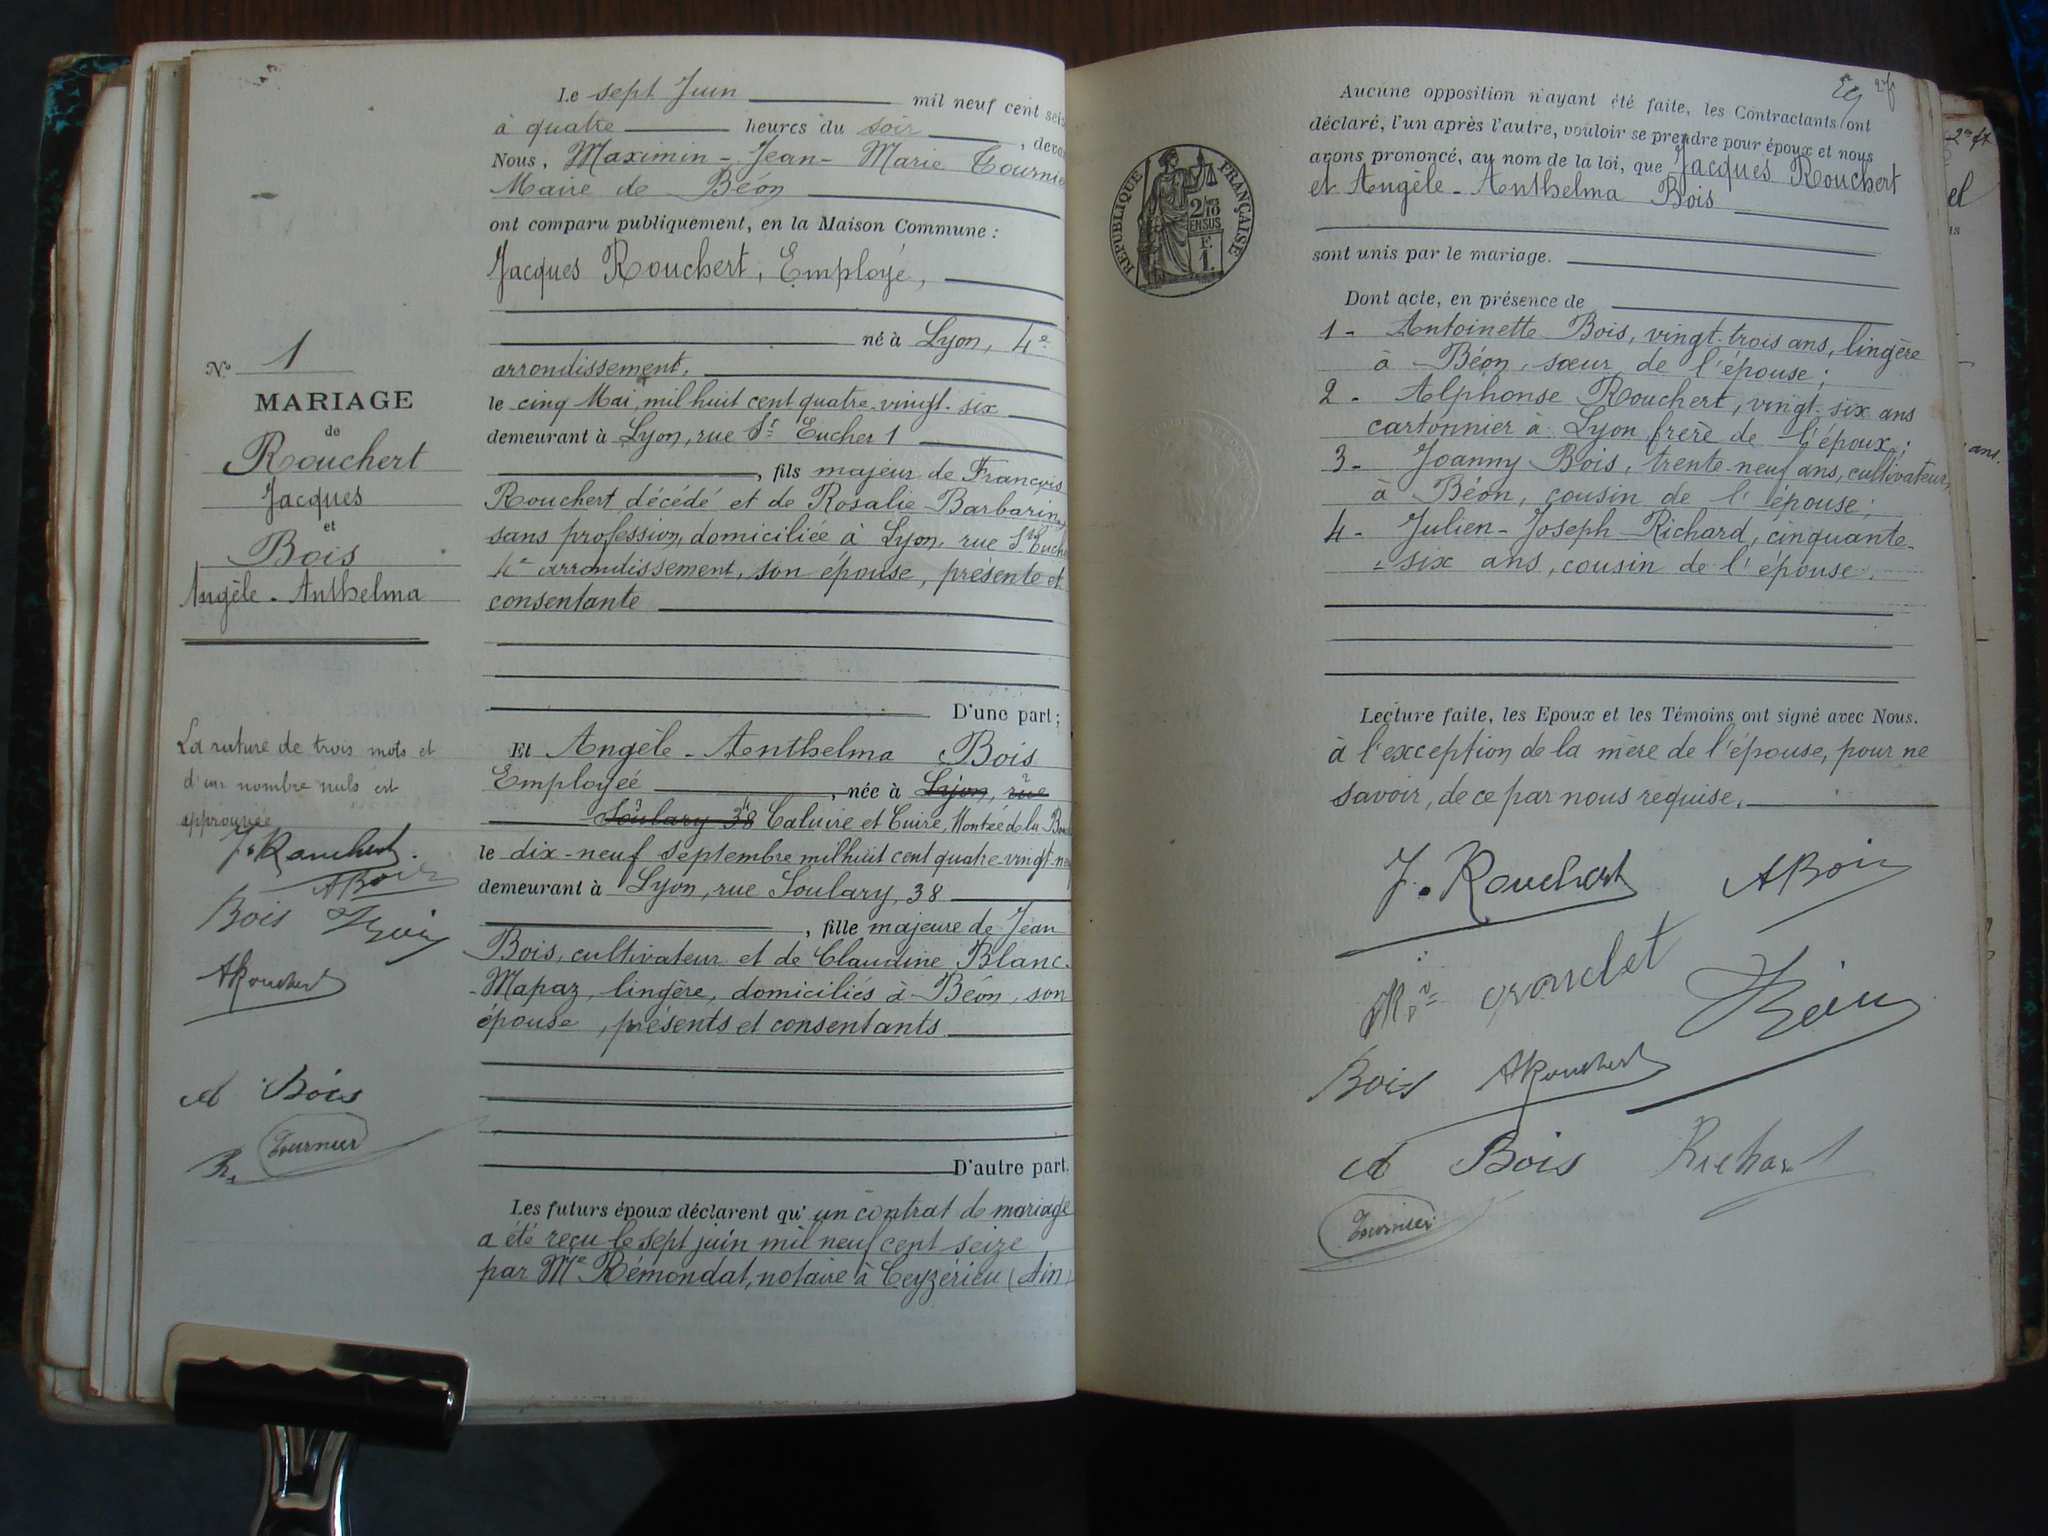 Le sept Juin mil neuf cent seiz
à quatre heures du soir, devan
Nous, Maximin - Jean - Marie Tournie
Maire de Béon
ont comparu publiquement, en la Maison Commune :
Jacques Rouchert, Employé,
né à Lyon, 4e
arrondissement,
le cinq Mai, mil huit cent quatre-vingt-six
demeurant à Lyon, rue St Eucher 1
, fils majeur de François
Rouchert décédé et de Rosalie Barbarin,
sans profession, domiciliée à Lyon, rue St Euche
4e arrondissement, son épouse, présente et
consentante
D'une part ;
No 1
MARIAGE
de
Rouchert
Jacques
et
Bois
Angèle - Anthelma
La rature de trois mots et
d'un nombre nuls est
approuvée
J. Rouchert
A Bois
Bois
A Rouchert
A Bois
Tournier
R.
Et Angèle - Anthelma Bois
Employée, née à Lyon, rue
Soulary 38 Caluire et Cuire, Montée de la Bou
le dix-neuf septembre mil huit cent quatre-vingt-neu
demeurant à Lyon, rue Soulary, 38
, fille majeure de Jean
Bois, cultivateur et de Claudine Blanc-
-Mapaz, lingère, domiciliés à Béon, son
épouse, présents et consentants
D'autre part.
Les futurs époux déclarent qu'un contrat de mariage
a été reçu le sept juin mil neuf cent seize
par Me Rémondat, notaire à Ceyzérieu (Ain)
27
RÉPUBLIQUE FRANÇAISE
2/10
EN SUS
F.
1.
Aucune opposition n'ayant été faite, les Contractants ont
déclaré, l'un après l'autre, vouloir se prendre pour époux et nous
avons prononcé, au nom de la loi, que Jacques Rouchert
et Angèle - Anthelma Bois
sont unis par le mariage.
Dont acte, en présence de
1 - Antoinette Bois, vingt-trois ans, lingère
à Béon, sœur de l'épouse ;
2 - Alphonse Rouchert, vingt-six ans
cartonnier à Lyon frère de l'époux ;
3 - Joanny Bois, trente-neuf ans, cultivateur,
à Béon, cousin de l'épouse ;
4 - Julien - Joseph Richard, cinquante-
-six ans, cousin de l'épouse.
Lecture faite, les Epoux et les Témoins ont signé avec Nous.
à l'exception de la mère de l'épouse, pour ne
savoir, de ce par nous requise.
J. Rouchert
A Bois
Bois
A Rouchert
A Bois
Richard
Tournier